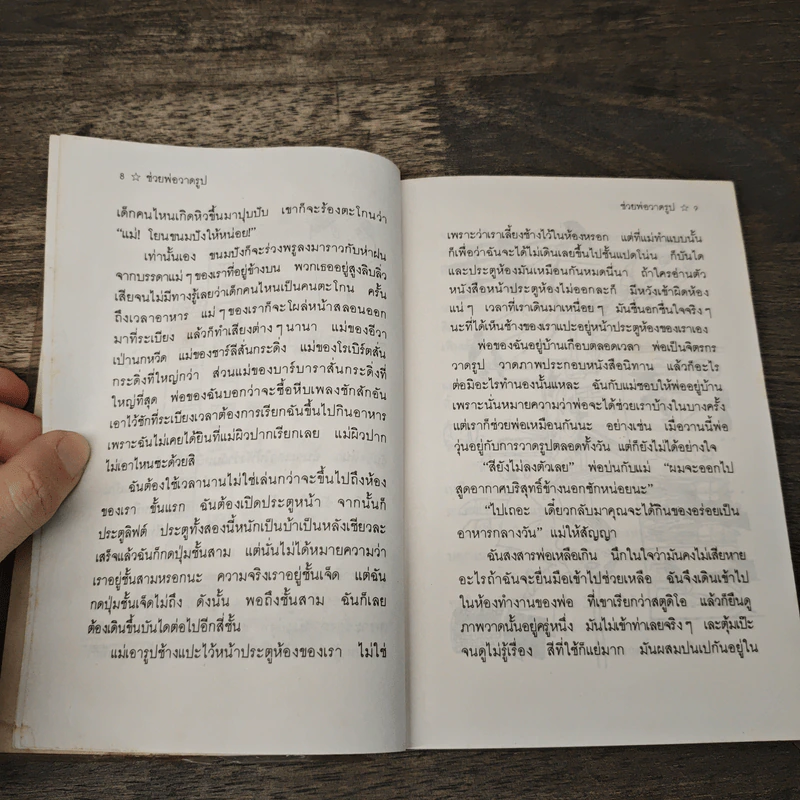 8 ☆ ช่วยพ่อวาดรูป
เด็กคนไหนเกิดหิวขึ้นมาปุบปับ เขาก็จะร้องตะโกนว่า
“แม่! โยนขนมปังให้หน่อย!”
เท่านั้นเอง ขนมปังก็จะร่วงพรูลงมาราวกับห่าฝน
จากบรรดาแม่ๆ ของเราที่อยู่ข้างบน พวกเธออยู่สูงลิบลิ่ว
เสียจนไม่มีทางรู้เลยว่าเด็กคนไหนเป็นคนตะโกน ครั้น
ถึงเวลาอาหาร แม่ๆ ของเราก็จะโผล่หน้าสลอนออก
มาที่ระเบียง แล้วก็ทำเสียงต่างๆ นานา แม่ของอีวา
เป่านกหวีด แม่ของชาร์ลีสั่นกระดิ่ง แม่ของโรเบิร์ตสั่น
กระดิ่งที่ใหญ่กว่า ส่วนแม่ของบาร์บาราสั่นกระดิ่งที่
ใหญ่ที่สุด พ่อของฉันบอกว่าจะซื้อหีบเพลงชักสักอัน
เอาไว้ชักที่ระเบียงเวลาต้องการเรียกฉันขึ้นไปกินอาหาร
เพราะฉันไม่เคยได้ยินที่แม่ผิวปากเรียกเลย แม่ผิวปาก
ไม่เอาไหนซะด้วยสิ
ฉันต้องใช้เวลานานไม่ใช่เล่นกว่าจะขึ้นไปถึงห้อง
ของเรา ขั้นแรก ฉันต้องเปิดประตูหน้า จากนั้นก็
ประตูลิฟต์ ประตูทั้งสองนี้หนักเป็นบ้าเป็นหลังเชียวละ
เสร็จแล้วฉันก็กดปุ่มชั้นสาม แต่นั่นไม่ได้หมายความว่า
เราอยู่ชั้นสามหรอกนะ ความจริงเราอยู่ชั้นเจ็ด แต่ฉัน
กดปุ่มชั้นเจ็ดไม่ถึง ดังนั้น พอถึงชั้นสาม ฉันก็เลย
ต้องเดินขึ้นบันไดต่อไปอีกสี่ชั้น
แม่เอารูปช้างแปะไว้หน้าประตูห้องของเรา ไม่ใช่
ช่วยพ่อวาดรูป ☆ 9
เพราะว่าเราเลี้ยงช้างไว้ในห้องหรอก แต่ที่แม่ทำแบบนั้น
ก็เพื่อว่าฉันจะได้ไม่เดินเลยขึ้นไปชั้นแปดโน่น ก็บันได
และประตูห้องมันเหมือนกันหมดนี่นา ถ้าใครอ่านตัว
หนังสือหน้าประตูห้องไม่ออกละก็ มีหวังเข้าผิดห้อง
แน่ๆ เวลาที่เราเดินมาเหนื่อยๆ มันชื่นอกชื่นใจจริงๆ
นะที่ได้เห็นช้างของเราแปะอยู่หน้าประตูห้องของเราเอง
พ่อของฉันอยู่บ้านเกือบตลอดเวลา พ่อเป็นจิตรกร
วาดรูป วาดภาพประกอบหนังสือนิทาน แล้วก็อะไร
ต่อมิอะไรทำนองนั้นแหละ ฉันกับแม่ชอบให้พ่ออยู่บ้าน
เพราะนั่นหมายความว่าพ่อจะได้ช่วยเราบ้างในบางครั้ง
แต่เราก็ช่วยพ่อเหมือนกันนะ อย่างเช่น เมื่อวานนี้พ่อ
วุ่นอยู่กับการวาดรูปตลอดทั้งวัน แต่ก็ยังไม่ได้อย่างใจ
“สียังไม่ลงตัวเลย” พ่อบ่นกับแม่ “ผมจะออกไป
สูดอากาศบริสุทธิ์ข้างนอกซักหน่อยนะ”
“ไปเถอะ เดี๋ยวกลับมาคุณจะได้กินของอร่อยเป็น
อาหารกลางวัน” แม่ให้สัญญา
ฉันสงสารพ่อเหลือเกิน นึกในใจว่ามันคงไม่เสียหาย
อะไรถ้าฉันจะยื่นมือเข้าไปช่วยเหลือ ฉันจึงเดินเข้าไป
ในห้องทำงานของพ่อ ที่เขาเรียกว่าสตูดิโอ แล้วก็ยืนดู
ภาพวาดนั้นอยู่ครู่หนึ่ง มันไม่เข้าท่าเลยจริงๆ เละตุ้มเป๊ะ
จนดูไม่รู้เรื่อง สีที่ใช้ก็แย่มาก มันผสมปนเปกันอยู่ใน